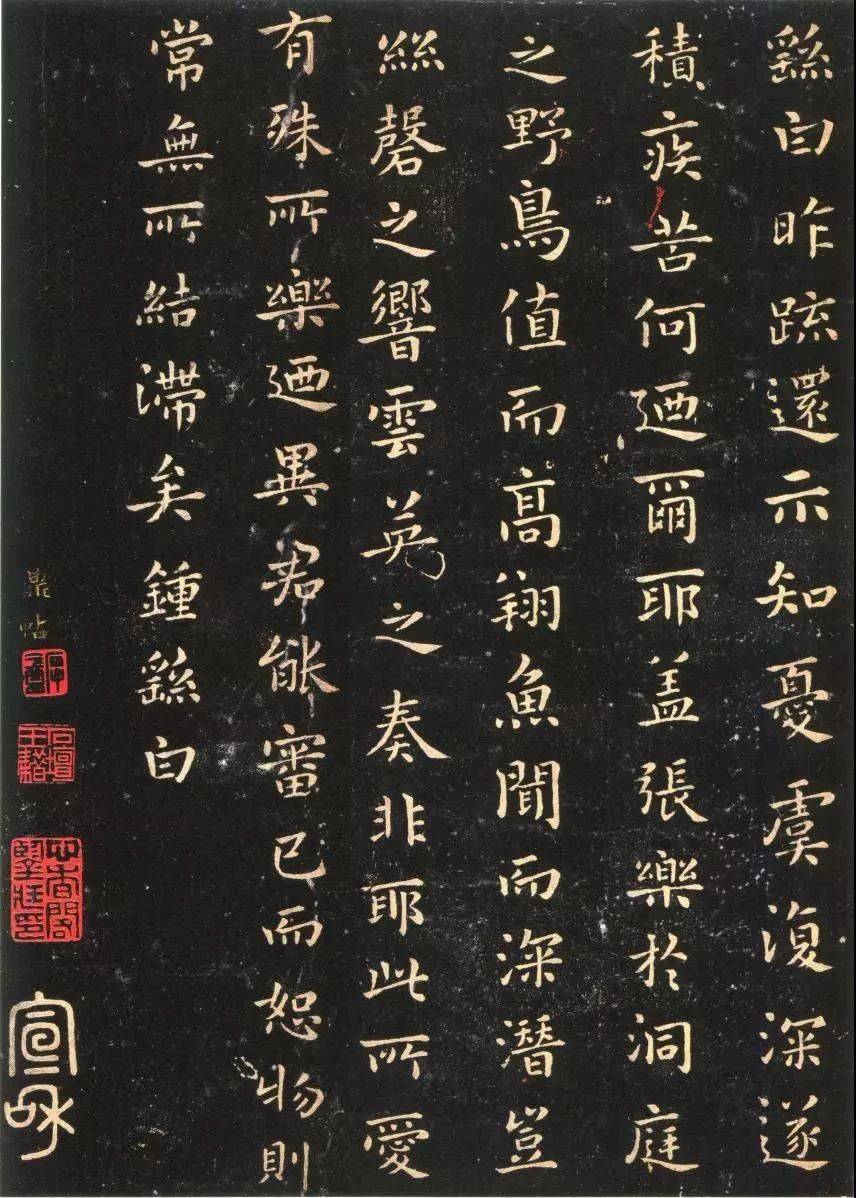 繇白昨疏還示知憂虞復深遂
積疾苦何迺爾耶盖張樂於洞庭
之野鳥值而高翔魚聞而深潛豈
絲磬之響雲英之奏非耶此所愛
有殊所樂迺異君能審己而恕物則
常無所結滯矣鍾繇白
鼎帖
心香閣
宣和